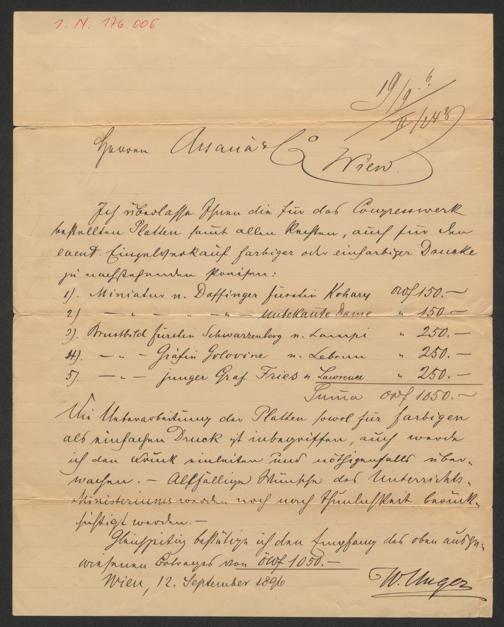 I. N. 176.006
19/9. 6
II/148
Herren Artaria & Co
Wien.
Ich überlasse Ihnen die für das Congresswerk
bestellten Platten samt allen Rechten, auch für den
event. Einzelverkauf farbiger oder einfarbiger Drucke
zu nachstehenden Preisen:
1). Miniatur v. Daffinger Fürstin Kohary öWf 150.—
2) — " — " — " — Unbekannte Dame " 150.—
3). Brustbild Fürsten Schwarzenberg v. Lampi " 250.—
4). — " — Gräfin Golovine v. Lebrun " 250.—
5). — " — junger Graf Fries v. Lawrence " 250.—
Suma öWf 1050.—
Die Überarbeitung der Platten sowol für farbigen
als einfachen Druck ist inbegriffen, auch werde
ich den Druck einleiten und nöthigenfalls über-
wachen. — Allfällige Wünsche des Unterrichts-
Ministeriums werden noch nach Thunlichkeit berück-
sichtigt werden. —
Gleichzeitig bestätige ich den Empfang des oben ausge-
wiesenen Betrages von öWf 1050.—
Wien, 12. September 1896
W. Unger